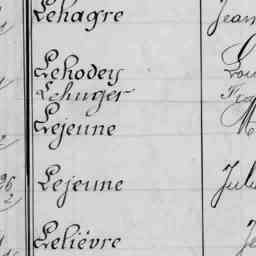 Lehagre Jean
Lehodey Lou
Lehuger
Lejeune
Lejeune Juli
Lelièvre Je